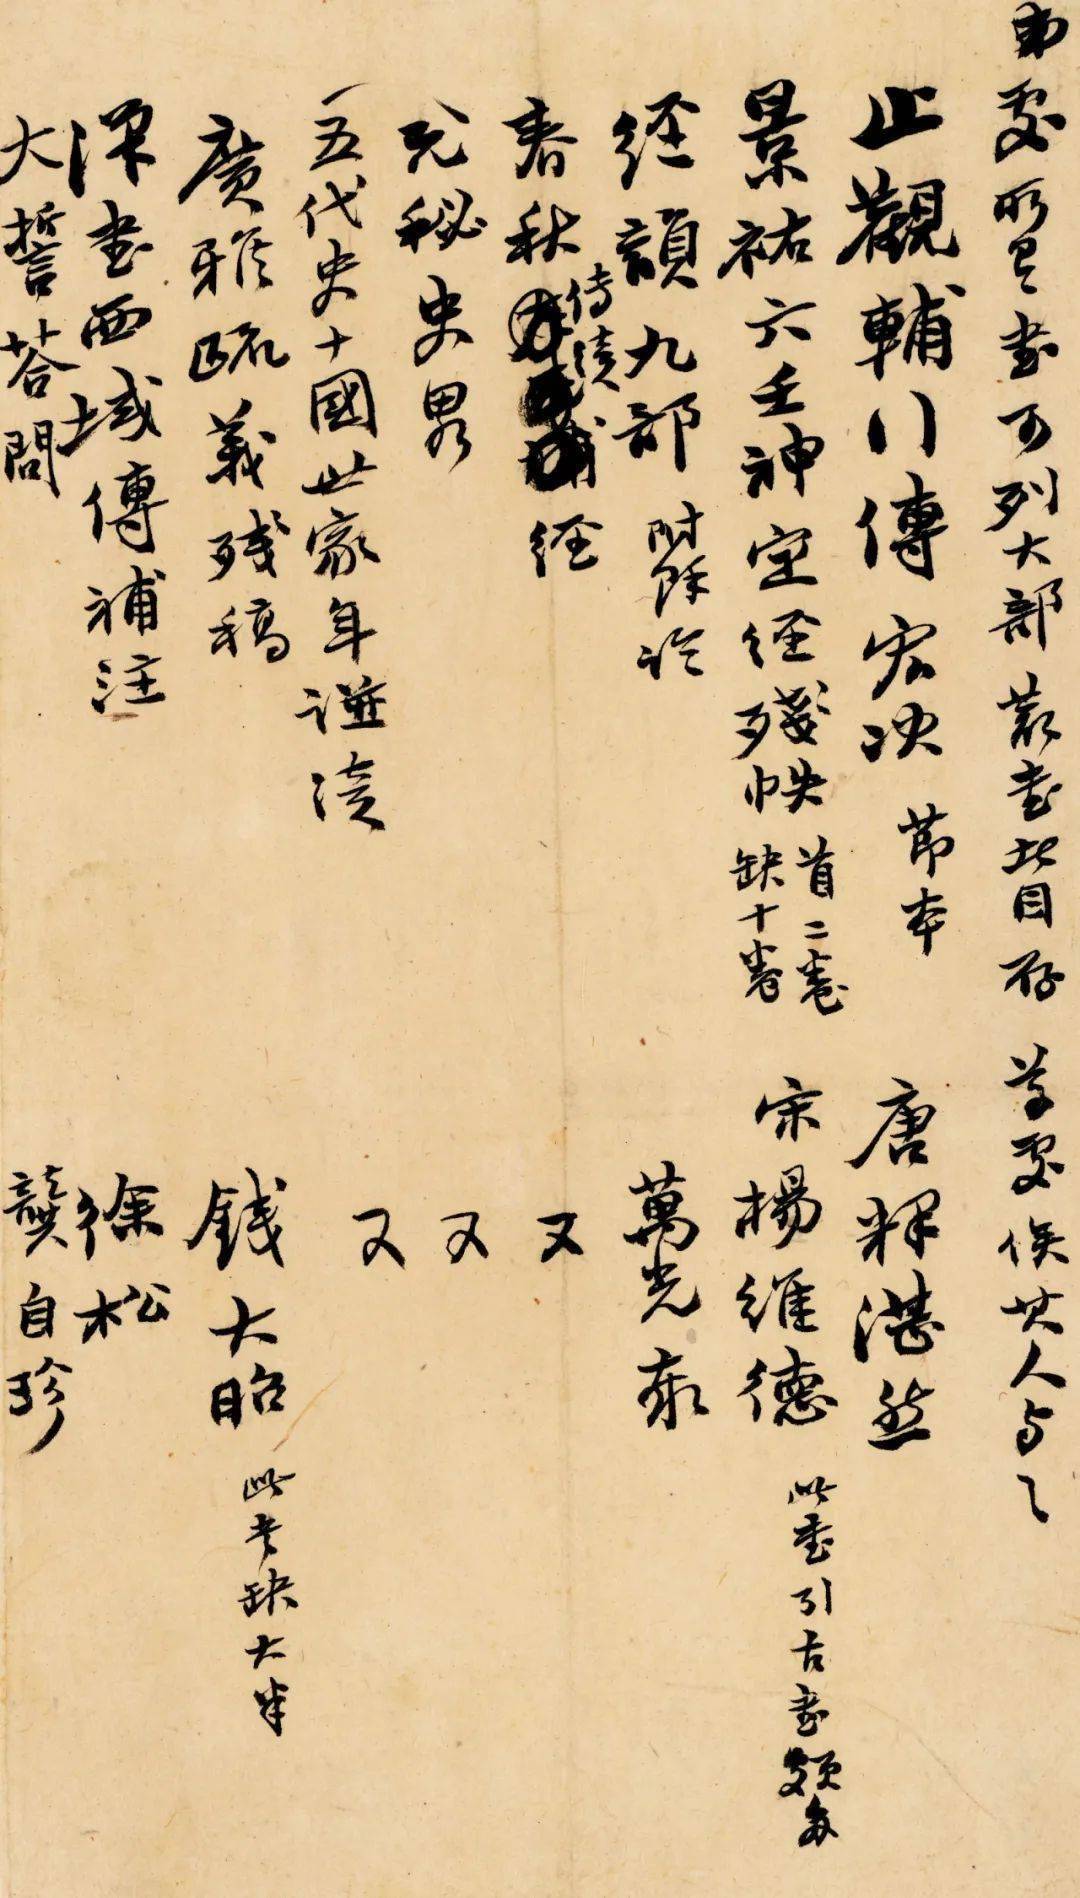 弟處所有書可列大部叢書此目存尊處俟其人与之
止觀輔行傳宏决 節本 唐釋湛然
景祐六壬神定經殘帙 首二卷缺十卷 宋楊維德 此書引古書頗多
經韻九部 附餘論 萬光泰
春秋傳續經 又
元秘史畧 又
五代史十國世家年譜 又
廣雅疏義殘稿 錢大昭 此書缺大半
漢書西域傳補注 徐松
大誓荅問 龔自珍